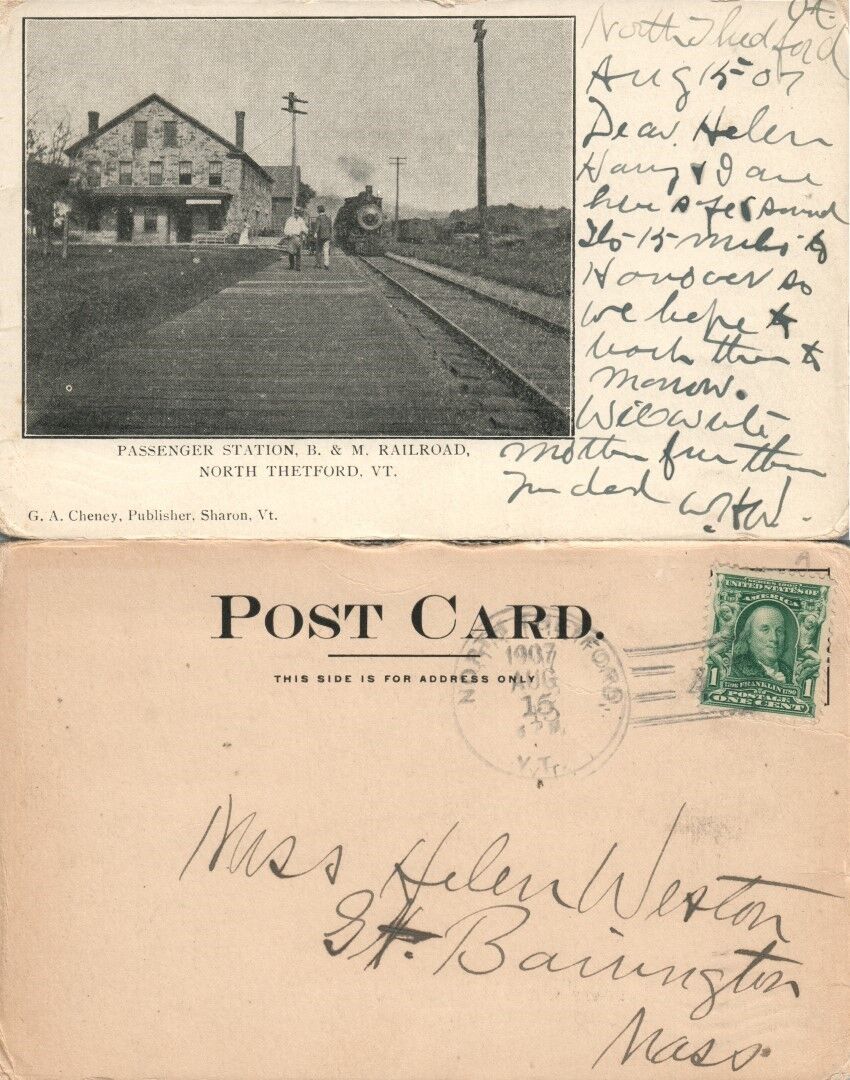 North Thedford
Vt.
Aug 15 07
Dear Helen
Harry & I are
here safe & sound
Its 15 miles to
Hanover so
we hope to
reach there to
morrow.
Will write
Mother further
W.H.W.
PASSENGER STATION, B. & M. RAILROAD,
NORTH THETFORD, VT.
G. A. Cheney, Publisher, Sharon, Vt.
POST CARD.
THIS SIDE IS FOR ADDRESS ONLY
NORTH THETFORD,
1907
AUG
15
VT.
SERIES 1902
UNITED STATES OF
AMERICA
1 1
1706 FRANKLIN 1790
POSTAGE
ONE CENT
Miss Helen Weston
Gt. Barrington
Mass.